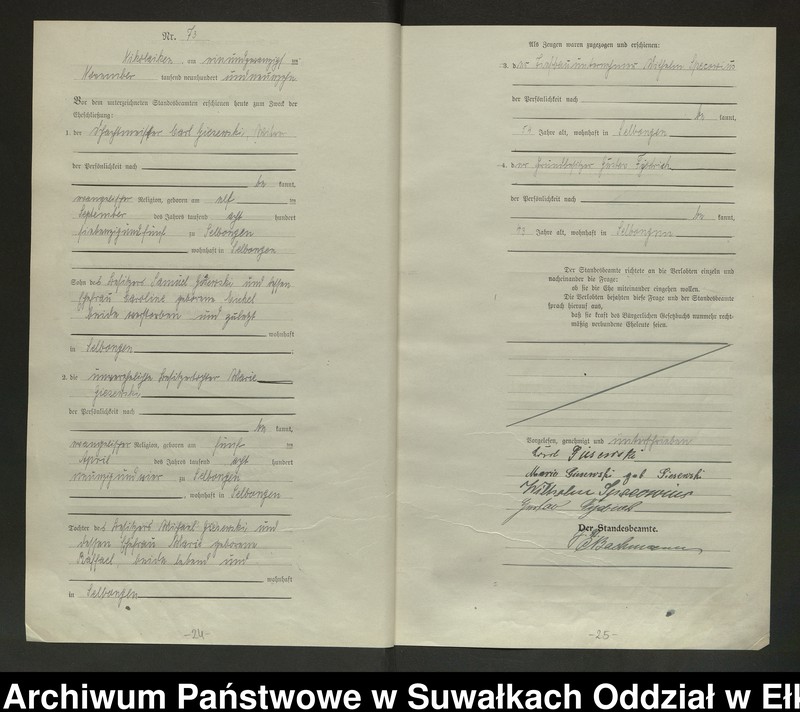 Nr. 73
Nikolaiken am einundzwanzigsten
November tausend neunhundert undneunzehn
Vor dem unterzeichneten Standesbeamten erschienen heute zum Zweck der
Eheschließung:
1. der Carl Gisewski,
der Persönlichkeit nach
be kannt,
evangelischer Religion, geboren am elf ten
September des Jahres tausend acht hundert
siebenzigundfünf zu Selbongen
, wohnhaft in Selbongen
Sohn des Besitzers Samuel Gisewski und dessen
Ehefrau Caroline geborene
beide verstorben und zuletzt
wohnhaft
in Selbongen
2. die unverehelichte Besitzertochter Marie
Gisewski
der Persönlichkeit nach
be kannt,
evangelischer Religion, geboren am fünf ten
April des Jahres tausend acht hundert
neunzigundvier zu Selbongen
, wohnhaft in Selbongen
Tochter des Besitzers Michael Gisewski und
dessen Ehefrau Marie geborene
beide lebend und
wohnhaft
in Selbongen
-24-
Als Zeugen waren zugezogen und erschienen:
3. der Wilhelm
der Persönlichkeit nach
be kannt,
Jahre alt, wohnhaft in Selbongen
4. der Grundbesitzer Gustav
der Persönlichkeit nach
be kannt,
Jahre alt, wohnhaft in Selbongen
Der Standesbeamte richtete an die Verlobten einzeln und
nacheinander die Frage:
ob sie die Ehe miteinander eingehen wollen.
Die Verlobten bejahten diese Frage und der Standesbeamte
sprach hierauf aus,
daß sie kraft des Bürgerlichen Gesetzbuchs nunmehr recht-
mäßig verbundene Eheleute seien.
Vorgelesen, genehmigt und unterschrieben
Carl Gisewski
Marie Gisewski geb Gisewski
Wilhelm
Gustav
Der Standesbeamte.
Bachmann
-25-
Archiwum Państwowe w Suwałkach Oddział w Ełk